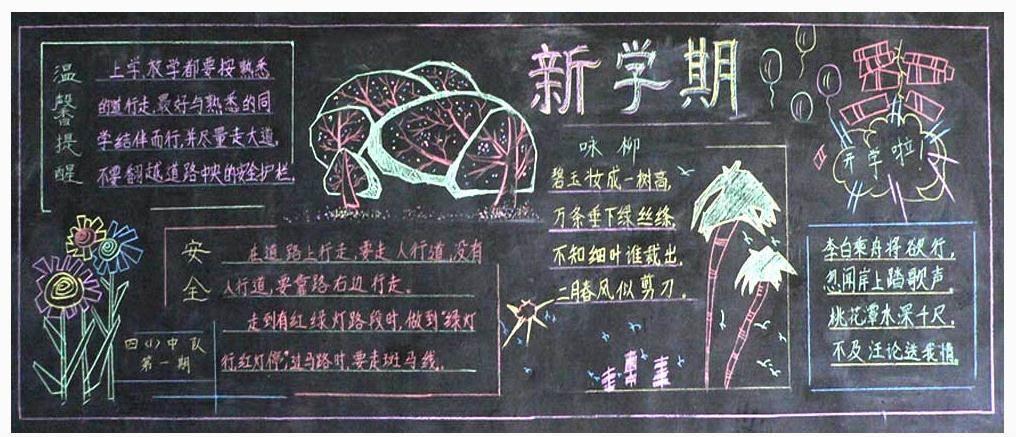 新学期
温馨提醒
上学放学都要按熟悉
的道行走,最好与熟悉的同
学结伴而行,并尽量走大道,
不要翻越道路中央的安全护栏.
安全
在道路上行走,要走人行道,没有
人行道,要靠路右边行走。
走到有红绿灯路段时,做到"绿灯
行,红灯停",过马路时,要走斑马线。
四(1)中队
第一期
咏柳
碧玉妆成一树高,
万条垂下绿丝绦.
不知细叶谁裁出,
二月春风似剪刀.
开学啦!
李白乘舟将欲行,
忽闻岸上踏歌声.
桃花潭水深千尺,
不及汪论送我情.